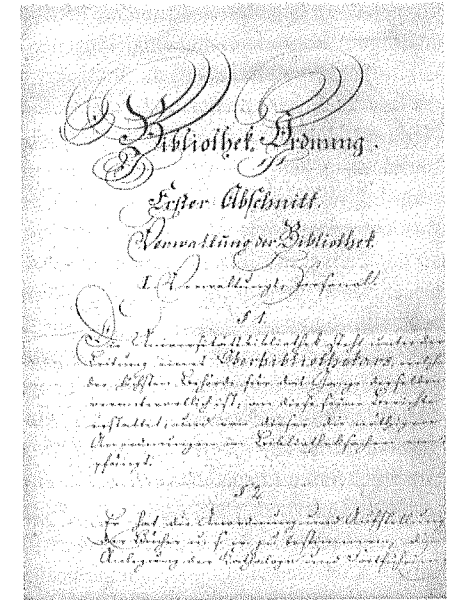 Bibliothek-Ordnung.
Erster Abschnitt.
Verwaltung der Bibliothek.
I. Verwaltungs-Personal.
§ 1.
Die Universitätsbibliothek steht unter der
Leitung eines Oberbibliothekars, welch
der höchsten Behörde für das Ganze derselben
verantwortlich ist, an diese seine Berichte
erstattet, und von dieser die nöthigen
Anordnungen in Bibliotheksachen em
pfängt.
§ 2.
Er hat die Anordnung und Aufstellung
der Bücher u. s. w. zu bestimmen, die
Anlegung der Kataloge und Fortführung